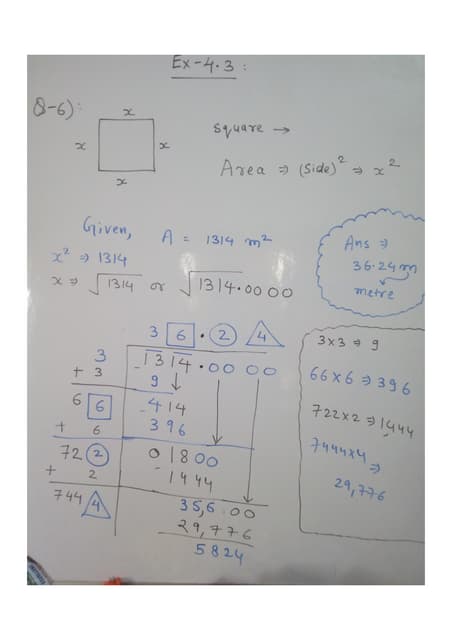 Ex-4.3:
Q-6):
x
x x
x
square →
Area ⇒ (Side)² ⇒ x²
Given, A = 1314 m²
x² ⇒ 1314
x ⇒ √1314 or √1314.00 00
Ans ⇒
36.24 m
metre
3 6 . 2 4
3 1314.00 00
+ 3 - 9
6 6 - 414
+ 6 396
72 2 0 1800
+ 2 - 1444
744 4 35,6 00
29,776
5824
3x3 ⇒ 9
66x6 ⇒ 396
722x2 ⇒ 1444
7444x4
⇒
29,776